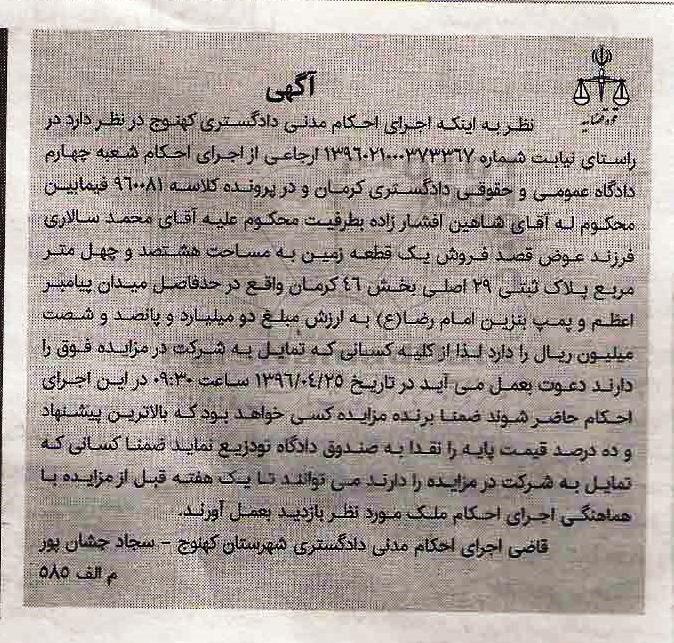 قوه قضاییه
آگهی
نظر به اینکه اجرای احکام مدنی دادگستری کهنوج در نظر دارد در
راستای نیابت شماره ۱۳۹۶۰۲۱۰۰۰۳۷۳۳۶۷ ارجاعی از اجرای احکام شعبه چهارم
دادگاه عمومی و حقوقی دادگستری کرمان و در پرونده کلاسه ۹۶۰۰۸۱ فیمابین
محکوم له آقای شاهین افشار زاده بطرفیت محکوم علیه آقای محمد سالاری
فرزند عوض قصد فروش یک قطعه زمین به مساحت هشتصد و چهل متر
مربع پلاک ثبتی ۲۹ اصلی بخش ۴۶ کرمان واقع در حدفاصل میدان پیامبر
اعظم و پمپ بنزین امام رضا(ع) به ارزش مبلغ دو میلیارد و پانصد و شصت
میلیون ریال را دارد لذا از کلیه کسانی که تمایل به شرکت در مزایده فوق را
دارند دعوت بعمل می آید در تاریخ ۱۳۹۶/۰۴/۲۵ ساعت ۰۹:۳۰ در این اجرای
احکام حاضر شوند ضمنا برنده مزایده کسی خواهد بود که بالاترین پیشنهاد
و ده درصد قیمت پایه را نقدا به صندوق دادگاه تودزیع نماید ضمنا کسانی که
تمایل به شرکت در مزایده را دارند می توانند تا یک هفته قبل از مزایده با
هماهنگی اجرای احکام ملک مورد نظر بازدید بعمل آورند.
قاضی اجرای احکام مدنی دادگستری شهرستان کهنوج - سجاد جشان پور
م الف ۵۸۵